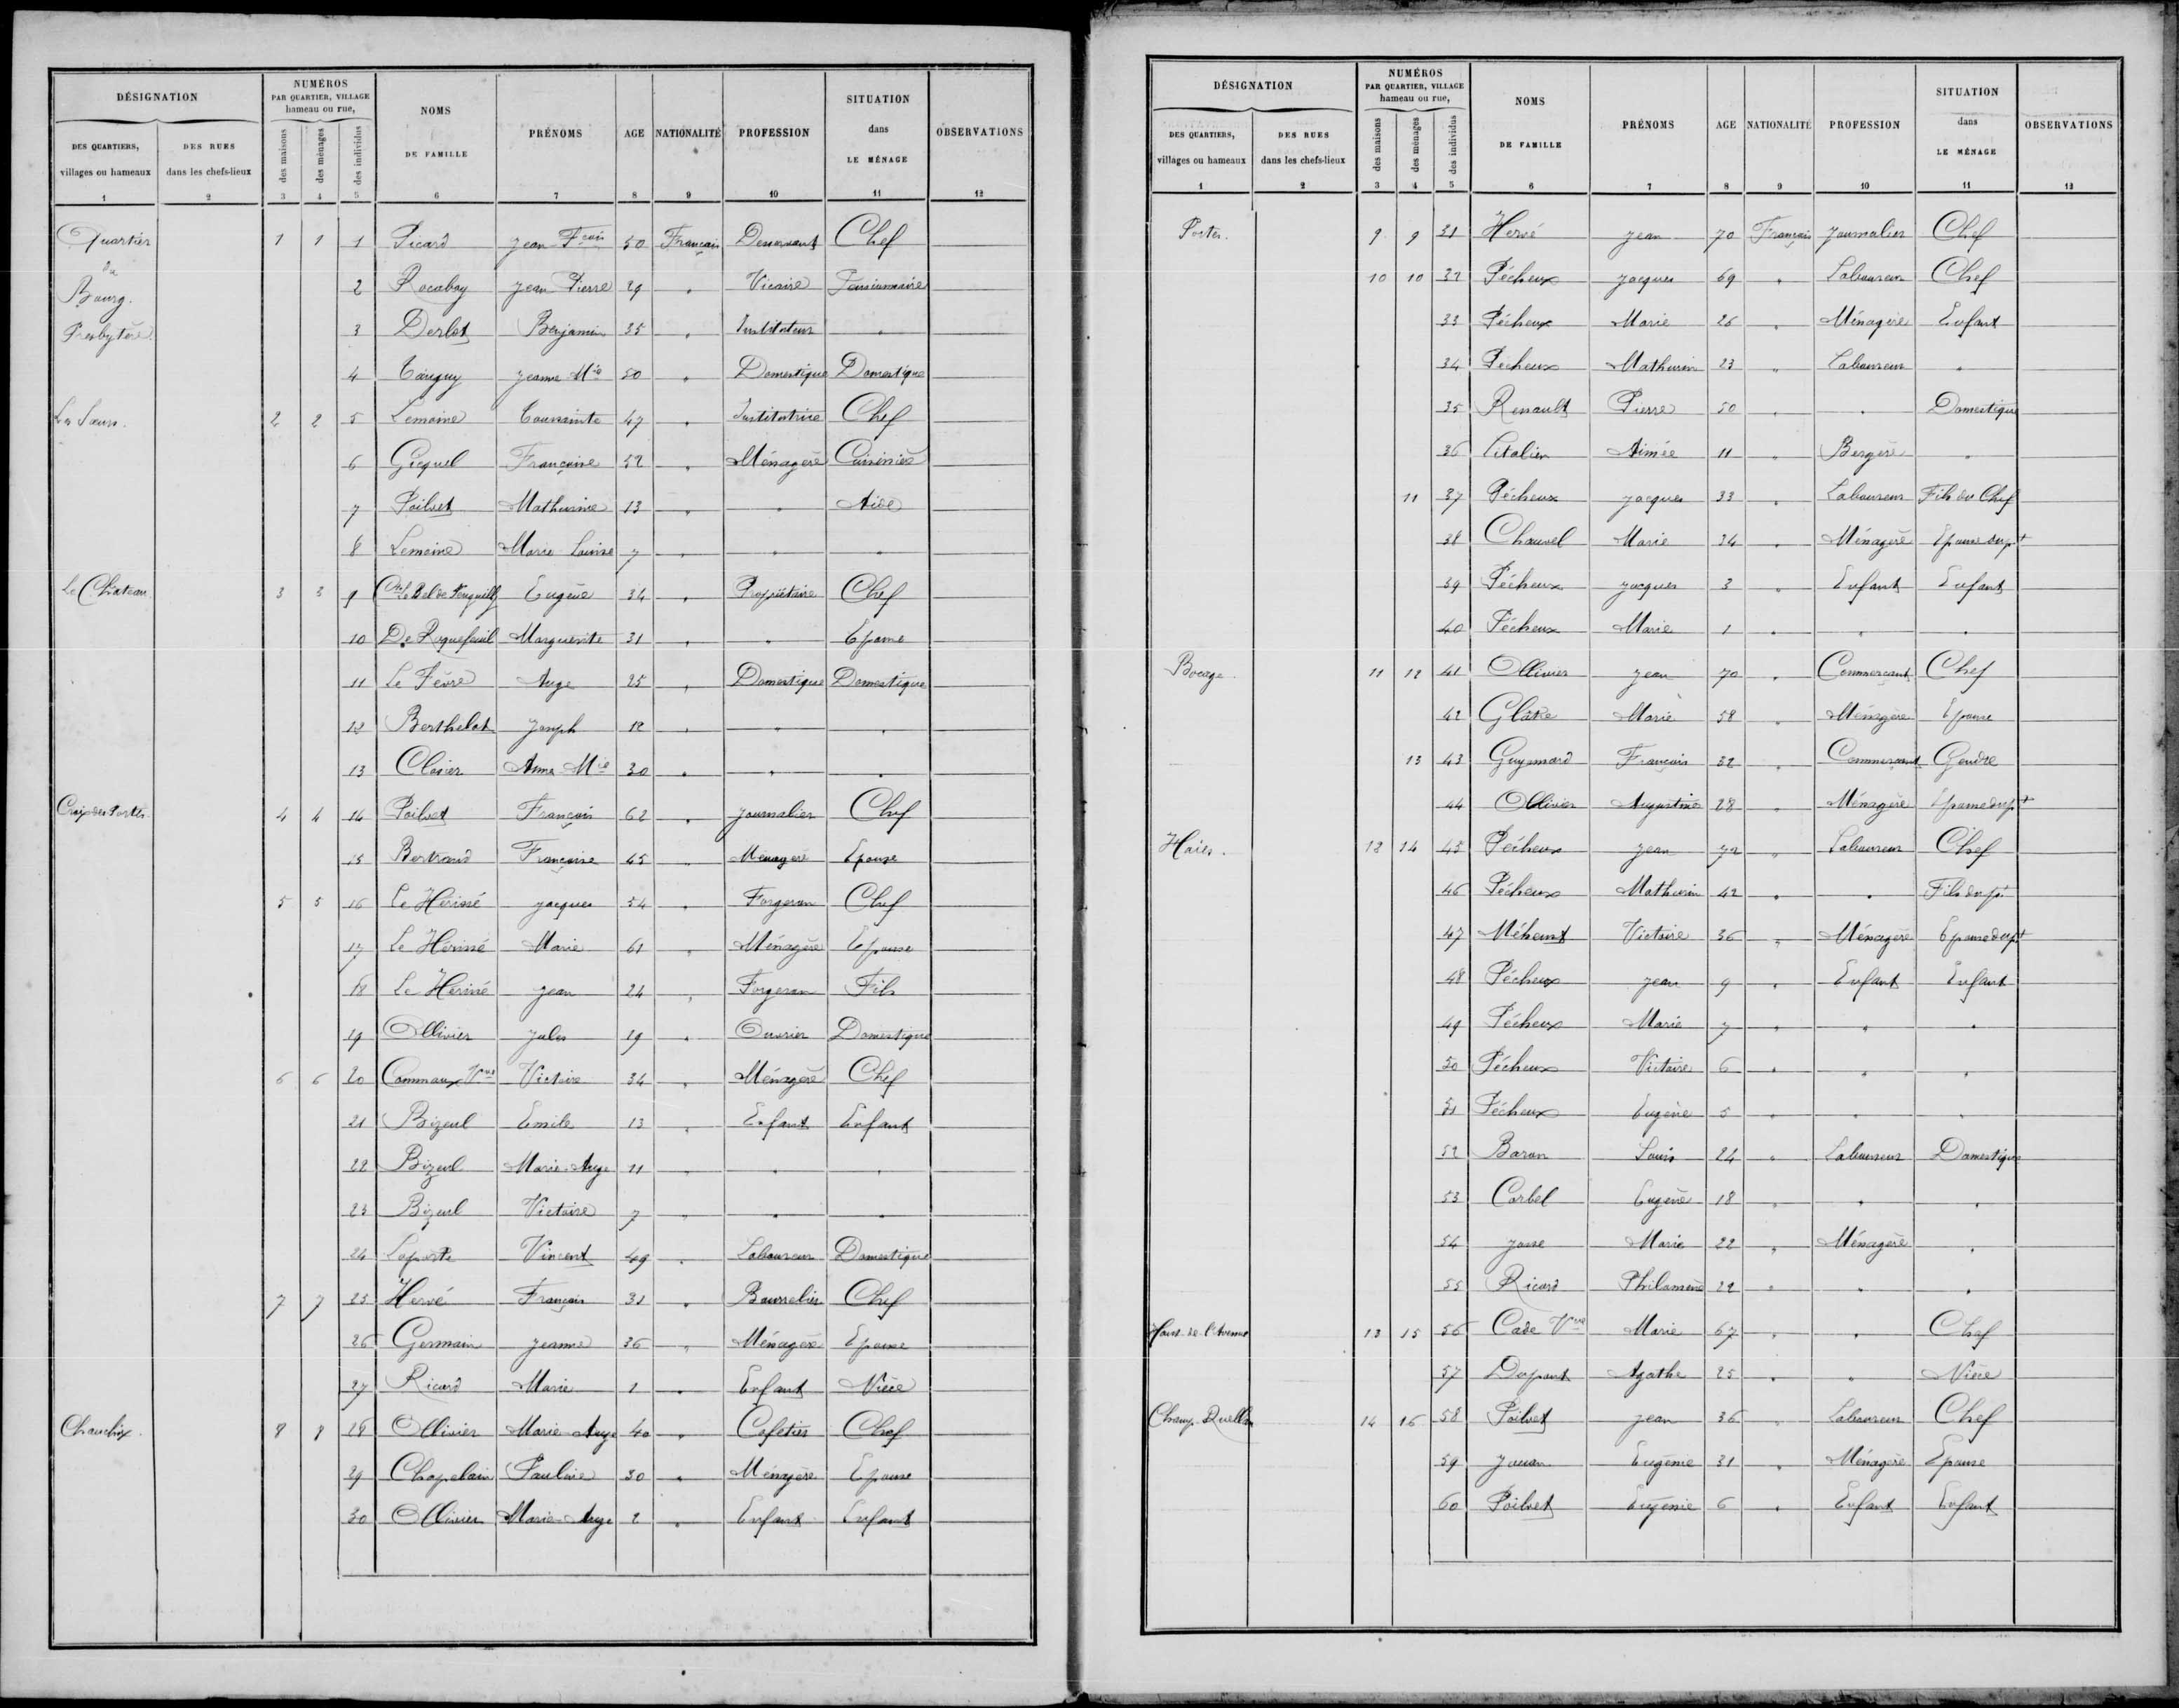 DÉSIGNATION
NUMÉROS
PAR QUARTIER, VILLAGE
hameau ou rue,
NOMS DE FAMILLE
PRÉNOMS
AGE
NATIONALITÉ
PROFESSION
SITUATION dans LE MÉNAGE
OBSERVATIONS
DES QUARTIERS, villages ou hameaux
DES RUES dans les chefs-lieux
des maisons
des ménages
des individus
1 2 3 4 5 6 7 8 9 10 11 12
Quartier 1 1 1 Picard Jean Fcois 50 Français Desservant Chef
du
Bourg. 2 Rocaboy Jean Pierre 29 " Vicaire Pensionnaire
Presbytère 3 Derlot Benjamin 35 " Instituteur "
4 Tanguy Jeanne Mie 50 " Domestique Domestique
Les Sœurs. 2 2 5 Lemoine Toussainte 47 " Institutrice Chef
6 Gicquel Françoise 52 " Ménagère Cuisinière
7 Poilvet Mathurine 13 " " Aide
8 Lemoine Marie Louise 7 " " "
Le Château 3 3 9 Cte Le Bel de Penguilly Eugène 34 " Propriétaire Chef
10 De Roquefeuil Marguerite 31 " " Epouse
11 Le Fèvre Ange 25 " Domestique Domestique
12 Berthelot Joseph 12 " " "
13 Closier Anna Mie 30 " " "
Croix des Portes 4 4 14 Poilvet François 62 " Journalier Chef
15 Bertrand Françoise 65 " Ménagère Epouse
5 5 16 Le Hérissé Jacques 54 " Forgeron Chef
17 Le Hérissé Marie 61 " Ménagère Epouse
18 Le Hérissé Jean 24 " Forgeron Fils
19 Ollivier Jules 19 " Ouvrier Domestique
6 6 20 Commaux Vve Victoire 34 " Ménagère Chef
21 Bizeul Emile 13 " Enfant Enfant
22 Bizeul Marie-Ange 11 " " "
23 Bizeul Victoire 7 " " "
24 Laporte Vincent 49 " Laboureur Domestique
7 7 25 Hervé François 31 " Bourrelier Chef
26 Germain Jeanne 36 " Ménagère Epouse
27 Ricard Marie 1 " Enfant Nièce
Chauchix. 8 8 28 Ollivier Marie-Ange 40 " Cafetier Chef
29 Chapelain Pauline 30 " Ménagère Epouse
30 Ollivier Marie-Ange 2 " Enfant Enfant
DÉSIGNATION
NUMÉROS
PAR QUARTIER, VILLAGE
hameau ou rue,
NOMS DE FAMILLE
PRÉNOMS
AGE
NATIONALITÉ
PROFESSION
SITUATION dans LE MÉNAGE
OBSERVATIONS
DES QUARTIERS, villages ou hameaux
DES RUES dans les chefs-lieux
des maisons
des ménages
des individus
1 2 3 4 5 6 7 8 9 10 11 12
Portes. 9 9 31 Hervé Jean 70 Français Journalier Chef
10 10 32 Pécheux Jacques 69 " Laboureur Chef
33 Pécheux Marie 26 " Ménagère Enfant
34 Pécheux Mathurin 23 " Laboureur "
35 Renault Pierre 50 " " Domestique
36 Litalien Aimée 11 " Bergère "
11 37 Pécheux Jacques 33 " Laboureur Fils du Chef
38 Chauvel Marie 34 " Ménagère Epouse du pt
39 Pécheux Jacques 3 " Enfant Enfant
40 Pécheux Marie 1 " " "
Bocage. 11 12 41 Ollivier Jean 70 " Commerçant Chef
42 Glâtre Marie 58 " Ménagère Epouse
13 43 Guymard François 32 " Commerçant Gendre
44 Ollivier Augustine 28 " Ménagère Epouse du pt
Haies. 12 14 45 Pécheux Jean 72 " Laboureur Chef
46 Pécheux Mathurin 42 " " Fils du pt
47 Méheust Victoire 36 " Ménagère Epouse du pt
48 Pécheux Jean 9 " Enfant Enfant
49 Pécheux Marie 7 " " "
50 Pécheux Victoire 6 " " "
51 Pécheux Eugène 5 " " "
52 Baron Louis 24 " Laboureur Domestique
53 Corbel Eugène 18 " " "
54 Josse Marie 22 " Ménagère "
55 Ricard Philomène 22 " " "
Haut de l'Avenue 13 15 56 Cade Vve Marie 67 " " Chef
57 Agathe 25 " " Nièce
14 16 58 Poilvet Jean 36 " Laboureur Chef
59 Jouan Eugénie 31 " Ménagère Epouse
60 Poilvet Eugénie 6 " Enfant Enfant